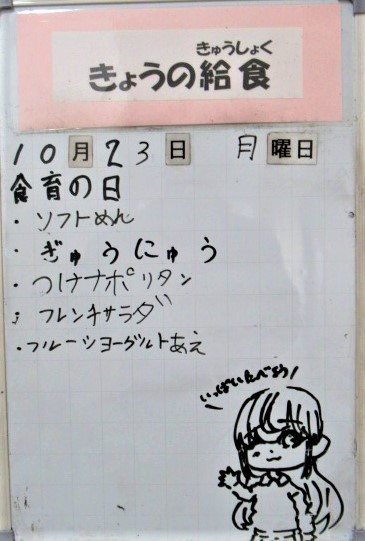 きゅうしょく
きょうの給食
10月23日 月曜日
食育の日
・ソフトめん
・ぎゅうにゅう
・つけナポリタン
・フレンチサラダ
・フルーツヨーグルトあえ
いっぱいたべよう!